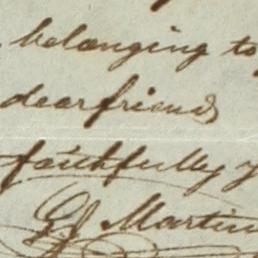 belonging to
dear friend
faithfully y
G J Martin